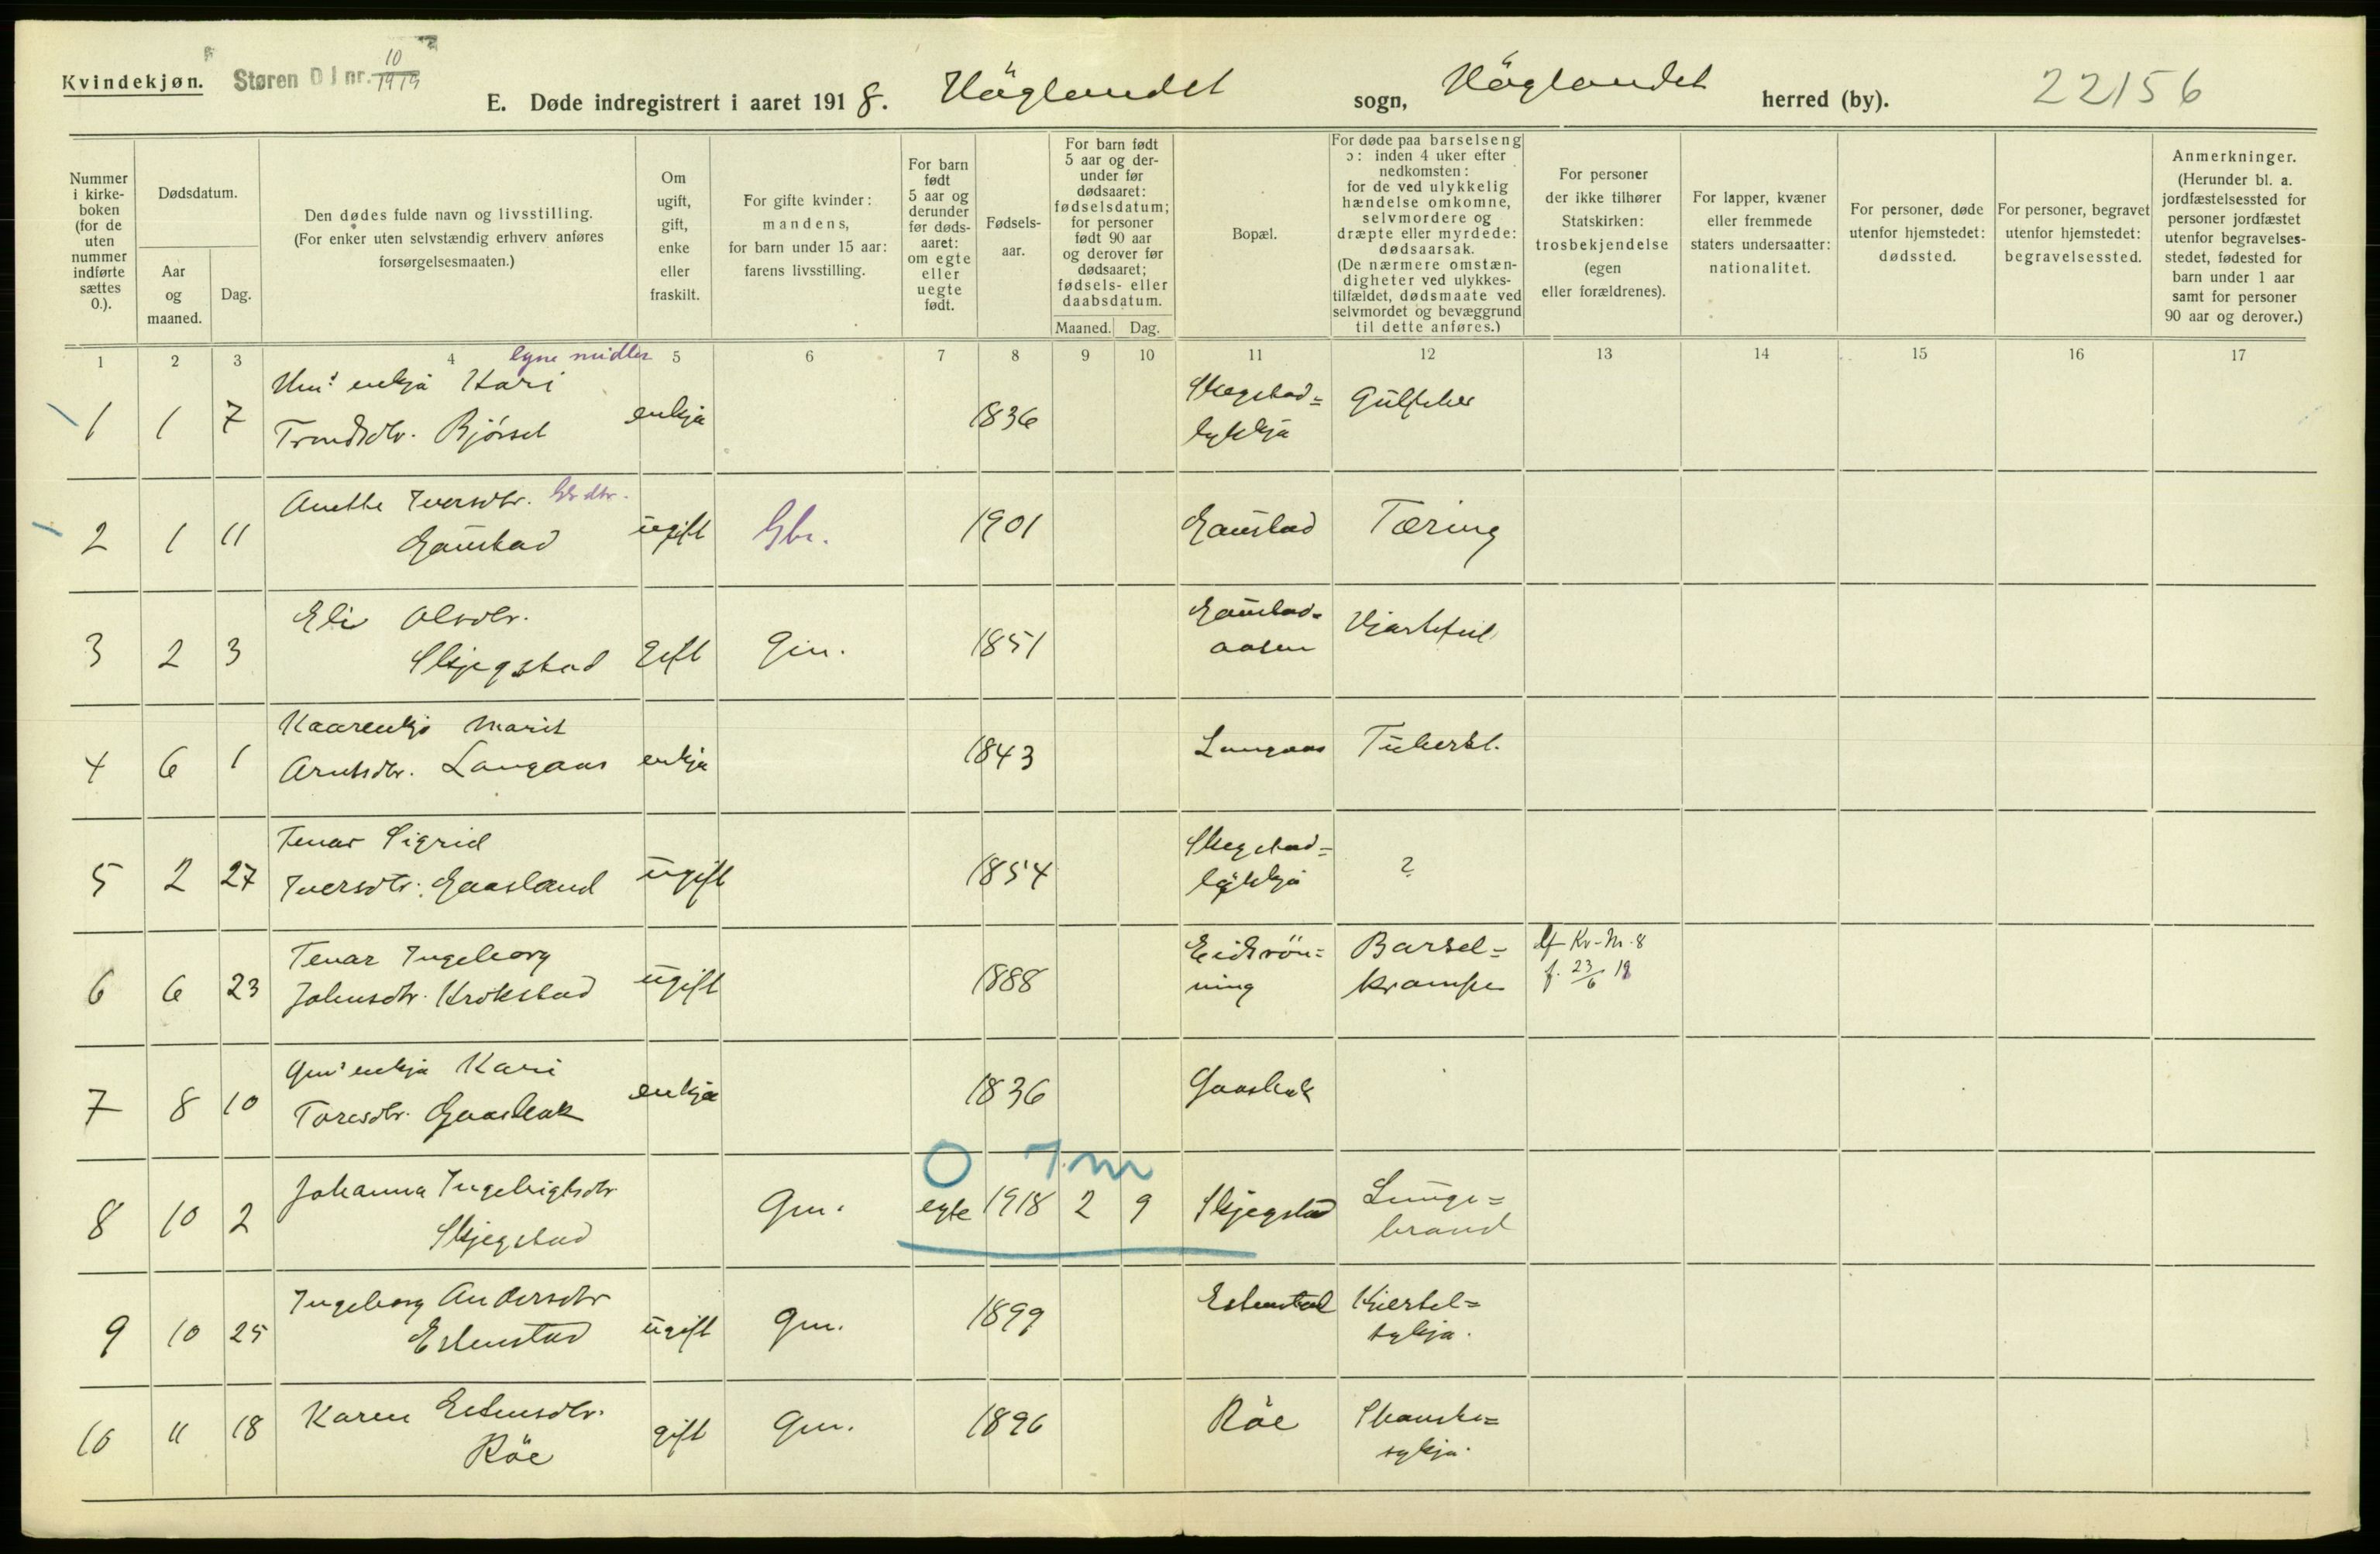 Kvindekjøn. Støren D I nr. 10/1919
E. Døde indregistrert i aaret 1918. Höglandet sogn, Höglandet herred (by). 22156
Nummer i kirkeboken (for de uten nummer indførte sættes 0.).
Dødsdatum.
Aar og maaned.
Dag.
Den dødes fulde navn og livsstilling.
(For enker uten selvstændig erhverv anføres forsørgelsesmaaten.)
Om ugift, gift, enke eller fraskilt.
For gifte kvinder: mandens, for barn under 15 aar: farens livsstilling.
For barn født 5 aar og derunder før dødsaaret: om egte eller uegte født.
Fødselsaar.
For barn født 5 aar og derunder før dødsaaret: fødselsdatum; for personer født 90 aar og derover før dødsaaret; fødsels- eller daabsdatum.
Maaned. Dag.
Bopæl.
For døde paa barselseng ɔ: inden 4 uker efter nedkomsten: for de ved ulykkelig hændelse omkomne, selvmordere og dræpte eller myrdede: dødsaarsak. (De nærmere omstændigheter ved ulykkestilfældet, dødsmaate ved selvmordet og bevæggrund til dette anføres.)
For personer der ikke tilhører Statskirken: trosbekjendelse (egen eller forældrenes).
For lapper, kvæner eller fremmede staters undersaatter: nationalitet.
For personer, døde utenfor hjemstedet: dødssted.
For personer, begravet utenfor hjemstedet: begravelsessted.
Anmerkninger. (Herunder bl. a. jordfæstelsessted for personer jordfæstet utenfor begravelsesstedet, fødested for barn under 1 aar samt for personer 90 aar og derover.)
1 2 3 4 5 6 7 8 9 10 11 12 13 14 15 16 17
egne midler
enkja Kari
1 1 7 Trondsdtr. Bjørset enkja 1836
2 1 11 Anethe Iversdtr. Gbr dtr. ugift Gbr. 1901 Tæring
3 2 3 Eli Olsdtr.
Skjegstad gift Gm. 1851 aasen Hjartefeil
4 6 1 Kaarenkja Marit
Arntsdtr. Langaas enkja 1843 Langaas Tuberkl.
5 2 27 Tenar Sigrid
Iversdtr. Gaasland ugift 1854 ?
6 6 23 Tenar Ingeborg
Johnsdtr. Krokstad ugift 1888 Eidsrön=
ning Barsel=
krampe Kr-M-8
f. 23/6 18
7 8 10 Gm's enkja Kari
Toresdtr. Gaasbak enkja 1836 Gaasbak
0 7m
8 10 2 Johanna Ingebrigtsdtr
Skjegstad Gm. egte 1918 2 9 Skjegstad Lunge=
brand
9 10 25 Ingeborg Andersdtr
Estenstad ugift Gm. 1899 Estenstad Kjertel=
sykja.
10 " 18 Karen Estensdtr.
Röe gift Gm. 1896 Röe Spanske=
sykja.